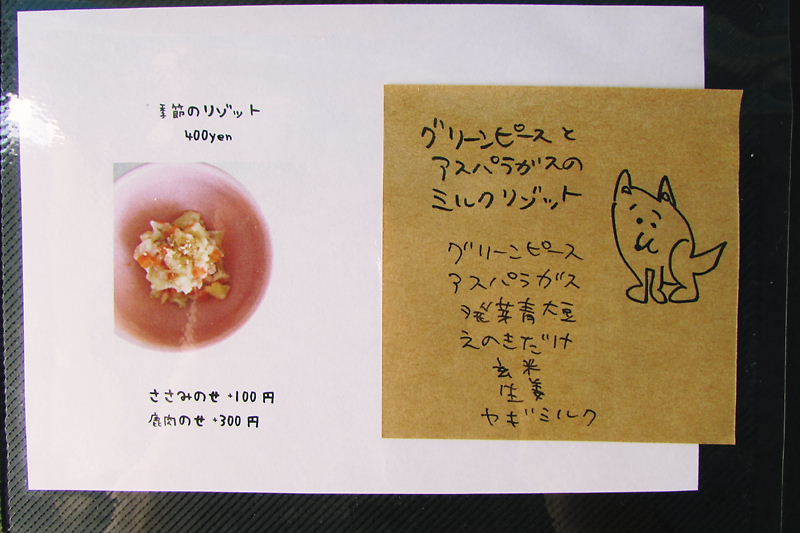 季節のリゾット
400yen
ささみのせ +100円
鹿肉のせ +300円
グリーンピースと
アスパラガスの
ミルクリゾット
グリーンピース
アスパラガス
発芽青大豆
えのきだけ
玄米
生姜
ヤギミルク